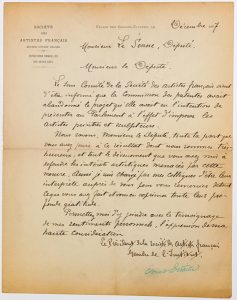 SOCIÉTÉ
DES
ARTISTES FRANÇAIS
Décembre
Monsieur Le Senne, Député,
Monsieur le Député,
Le Sous Comité de la Société des artistes français vient
d'être informé que la Commission des patentes avait
abandonné le projet qu'elle avait eu l'intention de
présenter au Parlement à l'effet d'imposer les
artistes peintres et sculpteurs.
Nous savons, Monsieur le Député, toute la part que
vous avez prise à ce résultat dont nous sommes très
heureux, et tout le dévouement que vous avez mis à
défendre les intérêts artistiques menacés par cette
mesure. Aussi je suis chargé par mes Collègues d'être leur
interprète auprès de vous pour vous remercier
vous exprimer toute leur pro-
fonde gratitude.
Permettez moi d'y joindre avec le témoignage
de mes sentiments personnels, l'expression de ma
haute considération
Le Président de la Société des Artistes français
Membre de l'Institut